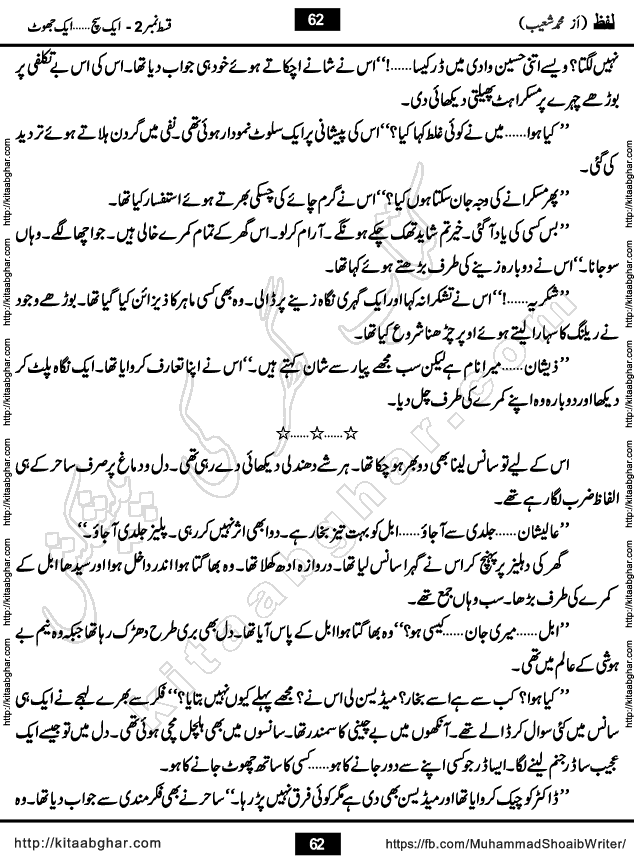 لفظ (از محمد شعیب)
62
قسط نمبر 2 - ایک سچ......ایک جھوٹ
نہیں لگتا؟ ویسے اتنی حسین وادی میں ڈر کیسا......!‘‘اس نے شانے اچکاتے ہوئے خود ہی جواب دیا تھا۔ اس کی اس بے تکلفی پر
بوڑھے چہرے پر مسکراہٹ پھیلتی دیکھائی دی۔
’’کیا ہوا......میں نے کوئی غلط کہا کیا؟‘‘اس کی پیشانی پر ایک سلوٹ نمودار ہوئی تھی۔ نفی میں گردن ہلاتے ہوئے تردید
کی گئی۔
’’پھر مسکرانے کی وجہ جان سکتا ہوں کیا؟‘‘اس نے گرم چائے کی چسکی بھرتے ہوئے استفسار کیا تھا۔
’’بس کسی کی یاد آ گئی۔ خیر تم شاید تھک چکے ہونگے۔ آرام کر لو۔ اس گھر کے تمام کمرے خالی ہیں۔ جو اچھا لگے۔ وہاں
سو جانا۔‘‘اس نے دوبارہ زینے کی طرف بڑھتے ہوئے کہا تھا۔
’’شکریہ......!‘‘اس نے تشکرانہ کہا اور ایک گہری نگاہ زینے پر ڈالی۔ وہ بھی کسی ماہر کا ڈیزائن کیا گیا تھا۔ بوڑھے وجود
نے ریلنگ کا سہارا لیتے ہوئے اوپر چڑھنا شروع کیا تھا۔
’’ذیشان......میرا نام ہے لیکن سب مجھے پیار سے شان کہتے ہیں۔‘‘اس نے اپنا تعارف کروایا تھا۔ ایک نگاہ پلٹ کر
دیکھا اور دوبارہ وہ اپنے کمرے کی طرف چل دیا۔
☆......☆......☆
اس کے لیے تو سانس لینا بھی دوبھر ہو چکا تھا۔ ہر شے دھندلی دیکھائی دے رہی تھی۔ دل و دماغ پر صرف ساحر کے ہی
الفاظ ضرب لگا رہے تھے۔
’’عالیشان......جلدی سے آ جاؤ......ابل کو بہت تیز بخار ہے۔ دوا بھی اثر نہیں کر رہی۔ پلیز جلدی آ جاؤ۔‘‘
گھر کی دہلیز پر پہنچ کر اس نے گہرا سانس لیا تھا۔ دروازہ ادھ کھلا تھا۔ وہ بھاگتا ہوا اندر داخل ہوا اور سیدھا ابل کے
کمرے کی طرف بڑھا۔ سب وہاں جمع تھے۔
’’ابل......میری جان......کیسی ہو؟‘‘وہ بھاگتا ہوا ابل کے پاس آیا تھا۔ دل بھی بری طرح دھڑک رہا تھا جبکہ وہ نیم بے
ہوشی کے عالم میں تھی۔
’’کیا ہوا؟ کب سے ہے اسے بخار؟ میڈیسن لی اس نے؟ مجھے پہلے کیوں نہیں بتایا؟‘‘فکر سے بھرے لہجے نے ایک ہی
سانس میں کئی سوال کر ڈالے تھے۔ آنکھوں میں بے چینی کا سمندر تھا۔ سانسوں میں بھی ہلچل مچی ہوئی تھی۔ دل میں تو جیسے ایک
عجیب سا ڈر جنم لینے لگا۔ ایسا ڈر جو کسی اپنے سے دور جانے کا ہو......کسی کا ساتھ چھوٹ جانے کا ہو۔
’’ڈاکٹر کو چیک کروایا تھا اور میڈیسن بھی دی ہے مگر کوئی فرق نہیں پڑ رہا۔‘‘ساحر نے بھی فکر مندی سے جواب دیا تھا۔ وہ
کتاب گھر کی پیشکش
kitaabghar.com
http://kitaabghar.com
http://kitaabghar.com
http://kitaabghar.com
http://kitaabghar.com
http://kitaabghar.com
http://kitaabghar.com
http://kitaabghar.com
http://kitaabghar.com
http://kitaabghar.com
http://kitaabghar.com
http://kitaabghar.com
http://kitaabghar.com
http://kitaabghar.com
62
https://fb.com/MuhammadShoaibWriter/